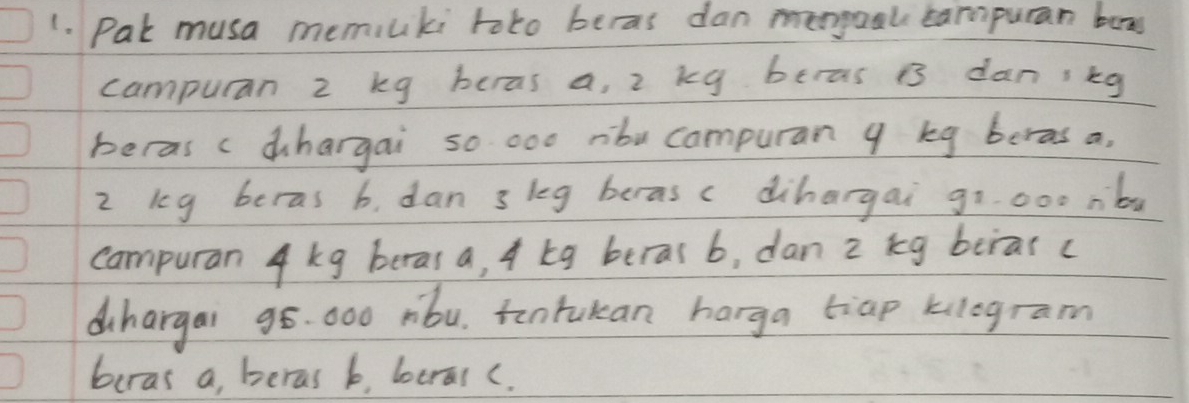 1. Pak musa memiliki toko beras dan menjual campuran beras
campuran 2 kg beras a, 2 kg beras B dan 1 kg
beras c dihargai 50.000 ribu campuran 4 kg beras a,
2 kg beras b, dan 3 kg beras c dihargai 92.000 ribu
campuran 4 kg beras a, 4 kg beras b, dan 2 kg beras c
dihargai 95.000 ribu. tentukan harga tiap kilogram
beras a, beras b, beras c.